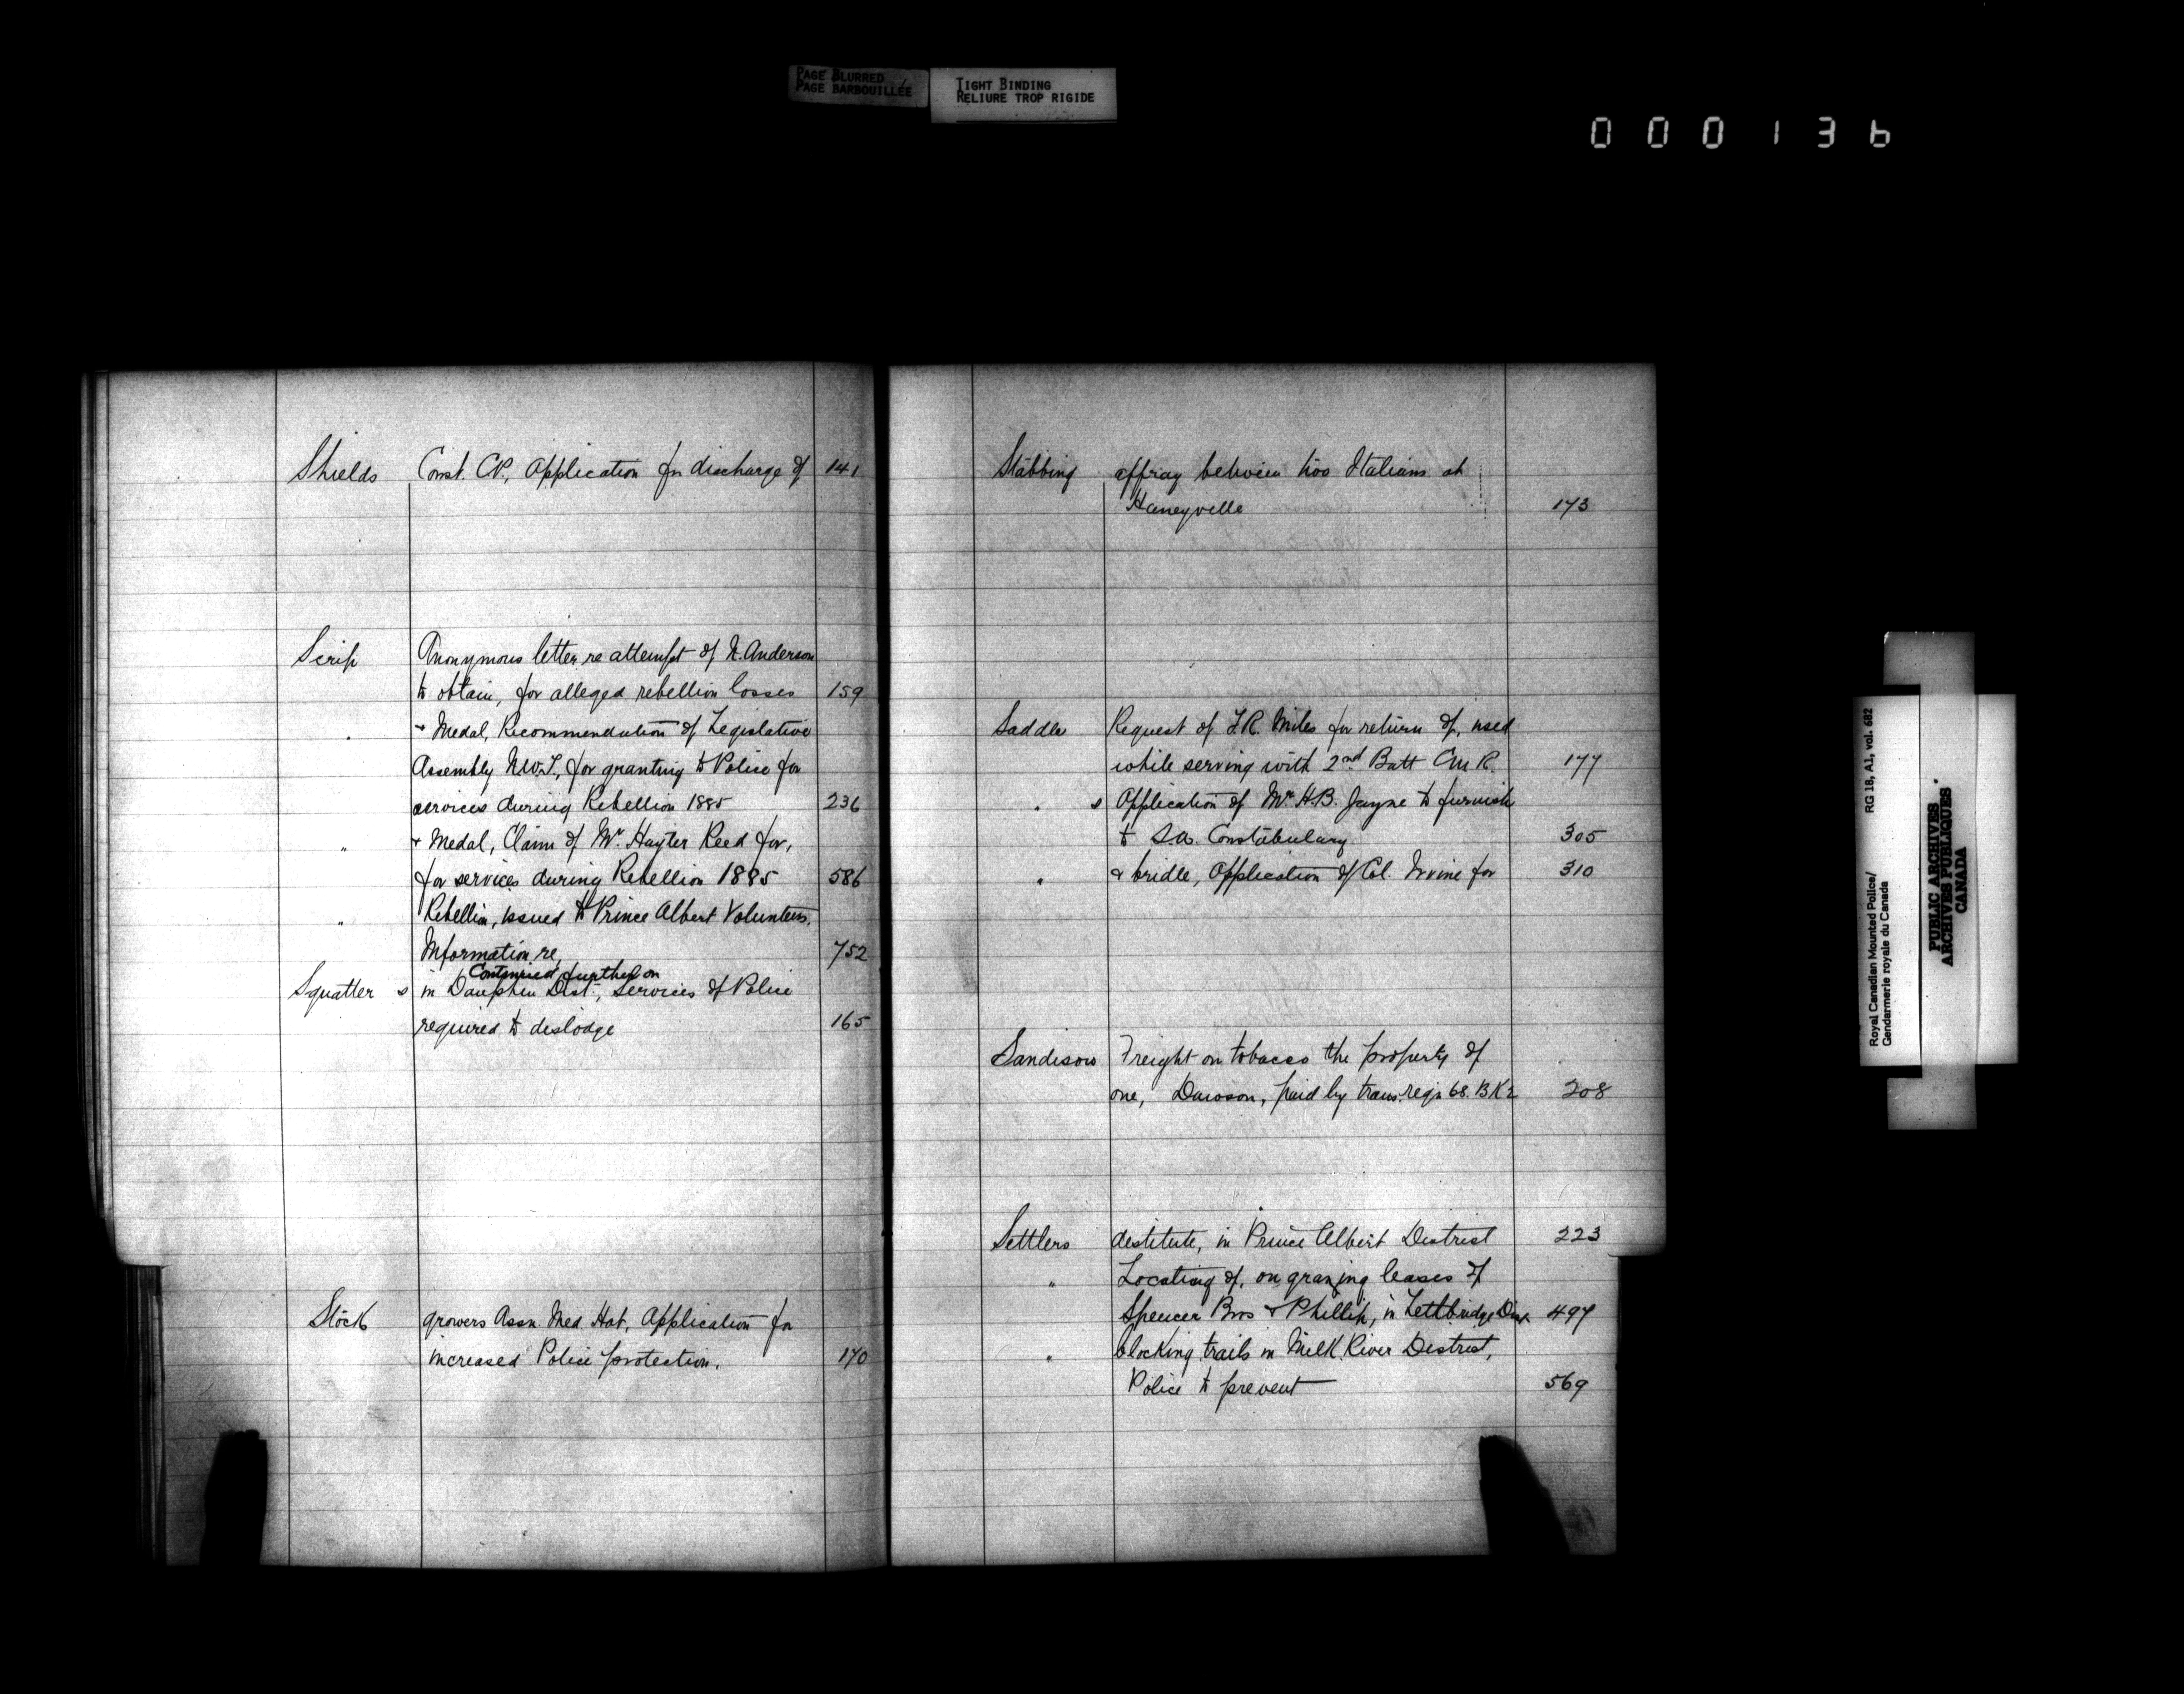 PAGE BLURRED
PAGE BARBOUILLÉE
TIGHT BINDING
RELIURE TROP RIGIDE
000136
Shields Const. C.P., Application for discharge of 141
Scrip Anonymous letter re attempt of N. Anderson
to obtain, for alleged rebellion losses 159
" + Medal, Recommendation of Legislative
Assembly N.W.T., for granting to Police for
services during Rebellion 1885 236
" + Medal, Claim of Mr. Hayter Reed for,
for services during Rebellion 1885 586
" Rebellion, issued to Prince Albert Volunteers,
Information re, 752
Continued further on
Squatter s in Dauphin Dist., Services of Police
required to dislodge 165
Stock growers Assn. Med. Hat, Application for
increased Police protection. 170
Stabbing affray between two Italians at
Haneyville 173
Saddle Request of F.R. Miles for return of, used
while serving with 2nd Batt C.M.R. 177
" s Application of Mr. H.B. Jayne to furnish
to S.A. Constabulary 305
" & bridle, Application of Col. Irvine for 310
Sandison Freight on tobacco the property of
one, Dawson, paid by trans. reqn 68. BK2 208
Settlers destitute, in Prince Albert District 223
" Locating of, on grazing leases of
Spencer Bros & Phillip, in Lethbridge Dist. 497
" blocking trails in Milk River District,
Police to prevent 569
Royal Canadian Mounted Police/ RG 18, A1, vol. 682
Gendarmerie royale du Canada
PUBLIC ARCHIVES
ARCHIVES PUBLIQUES
CANADA